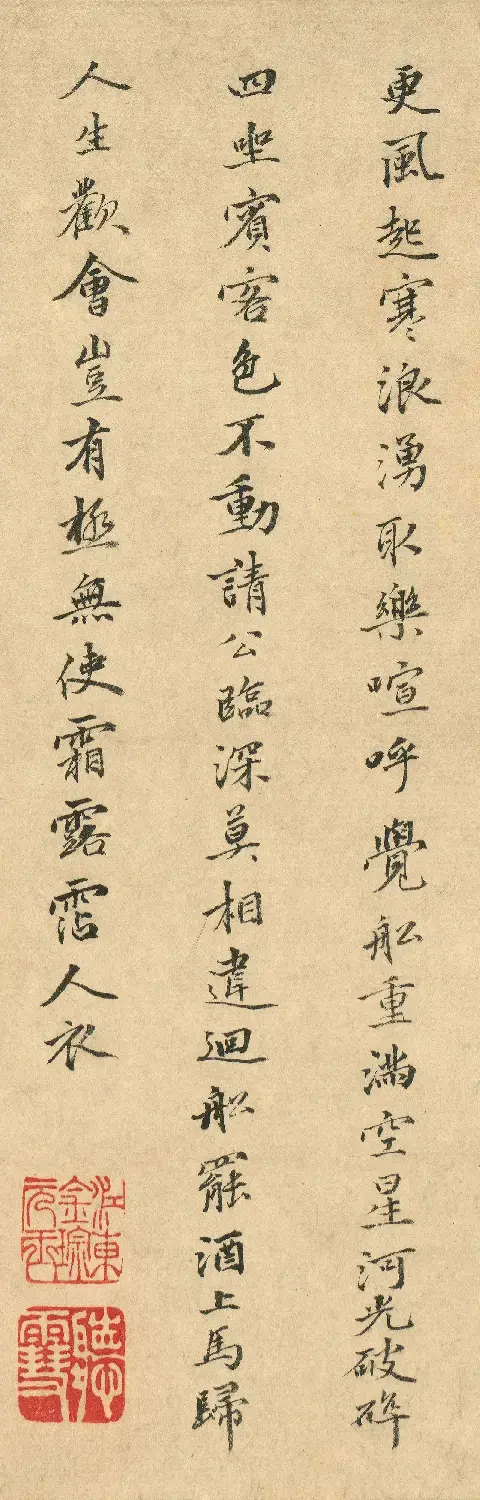 更風起寒浪湧取樂喧呼覺舩重滿空星河光破碎
四坐賓客色不動請公臨深莫相違迴舩罷酒上馬歸
人生歡會豈有極無使霜露霑人衣